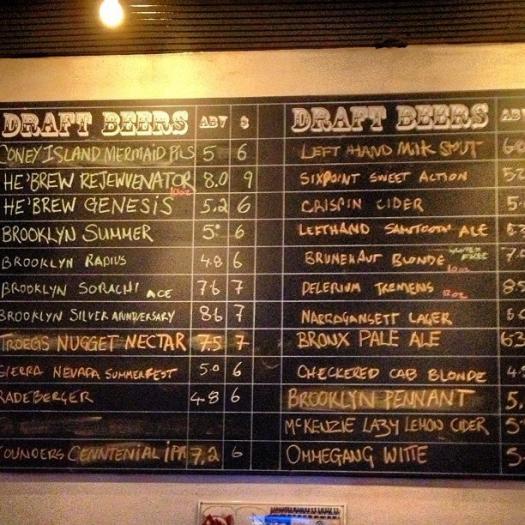 DRAFT BEERS ABV $
CONEY ISLAND MERMAID PILS 5 6
HE'BREW REJEWVENATOR 10oz 8.0 9
HE'BREW GENESIS 5.2 6
BROOKLYN SUMMER 5.0 6
BROOKLYN RADIUS 4.8 6
BROOKLYN SORACHI ACE 7.6 7
BROOKLYN SILVER ANNIVERSARY 8.6 7
TROEGS NUGGET NECTAR 7.5 7
SIERRA NEVADA SUMMERFEST 5.0 6
RADEBERGER 4.8 6
FOUNDERS CENNTENIAL IPA 7.2 6
DRAFT BEERS AB
LEFT HAND MILK STOUT 6.0
SIXPOINT SWEET ACTION 5.2
CRISPIN CIDER 5.
LEFTHAND SAWTOOTH ALE 5.3
BRUNEHAUT BLONDE GLUTEN FREE 10oz 7.
DELERIUM TREMENS 10oz 8.5
NARRAGANSETT LAGER
BRONX PALE ALE 6.3
CHECKERED CAB BLONDE 4.
BROOKLYN PENNANT 5.
MCKENZIE LAZY LEMON CIDER 5
OMMEGANG WITTE 5